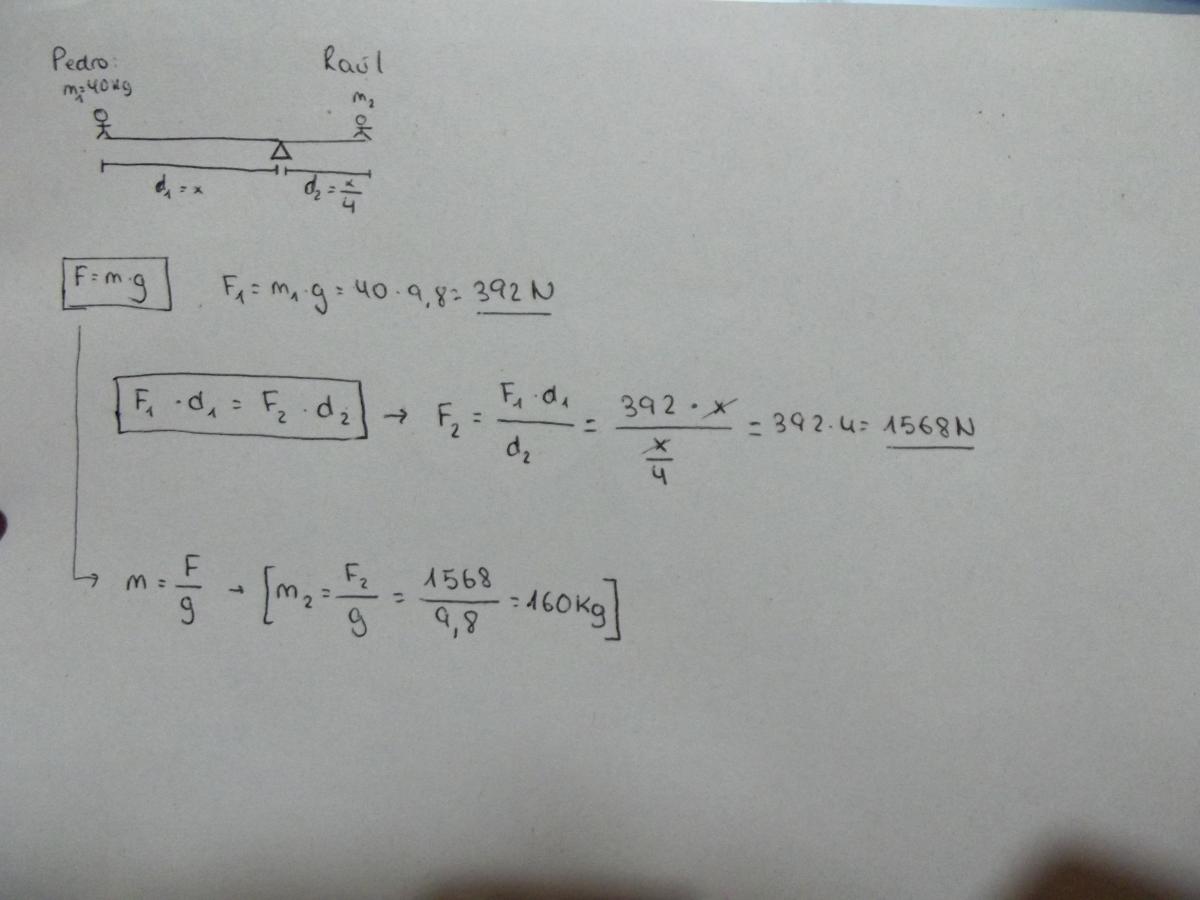 Pedro: Raúl
m₁=40Kg m₂
d₁ = x d₂ = x/4
F = m·g F₁ = m₁·g = 40·9,8 = 392 N
F₁ · d₁ = F₂ · d₂ → F₂ = F₁·d₁/d₂ = 392·x/(x/4) = 392·4 = 1568N
m = F/g → [m₂ = F₂/g = 1568/9,8 = 160Kg]